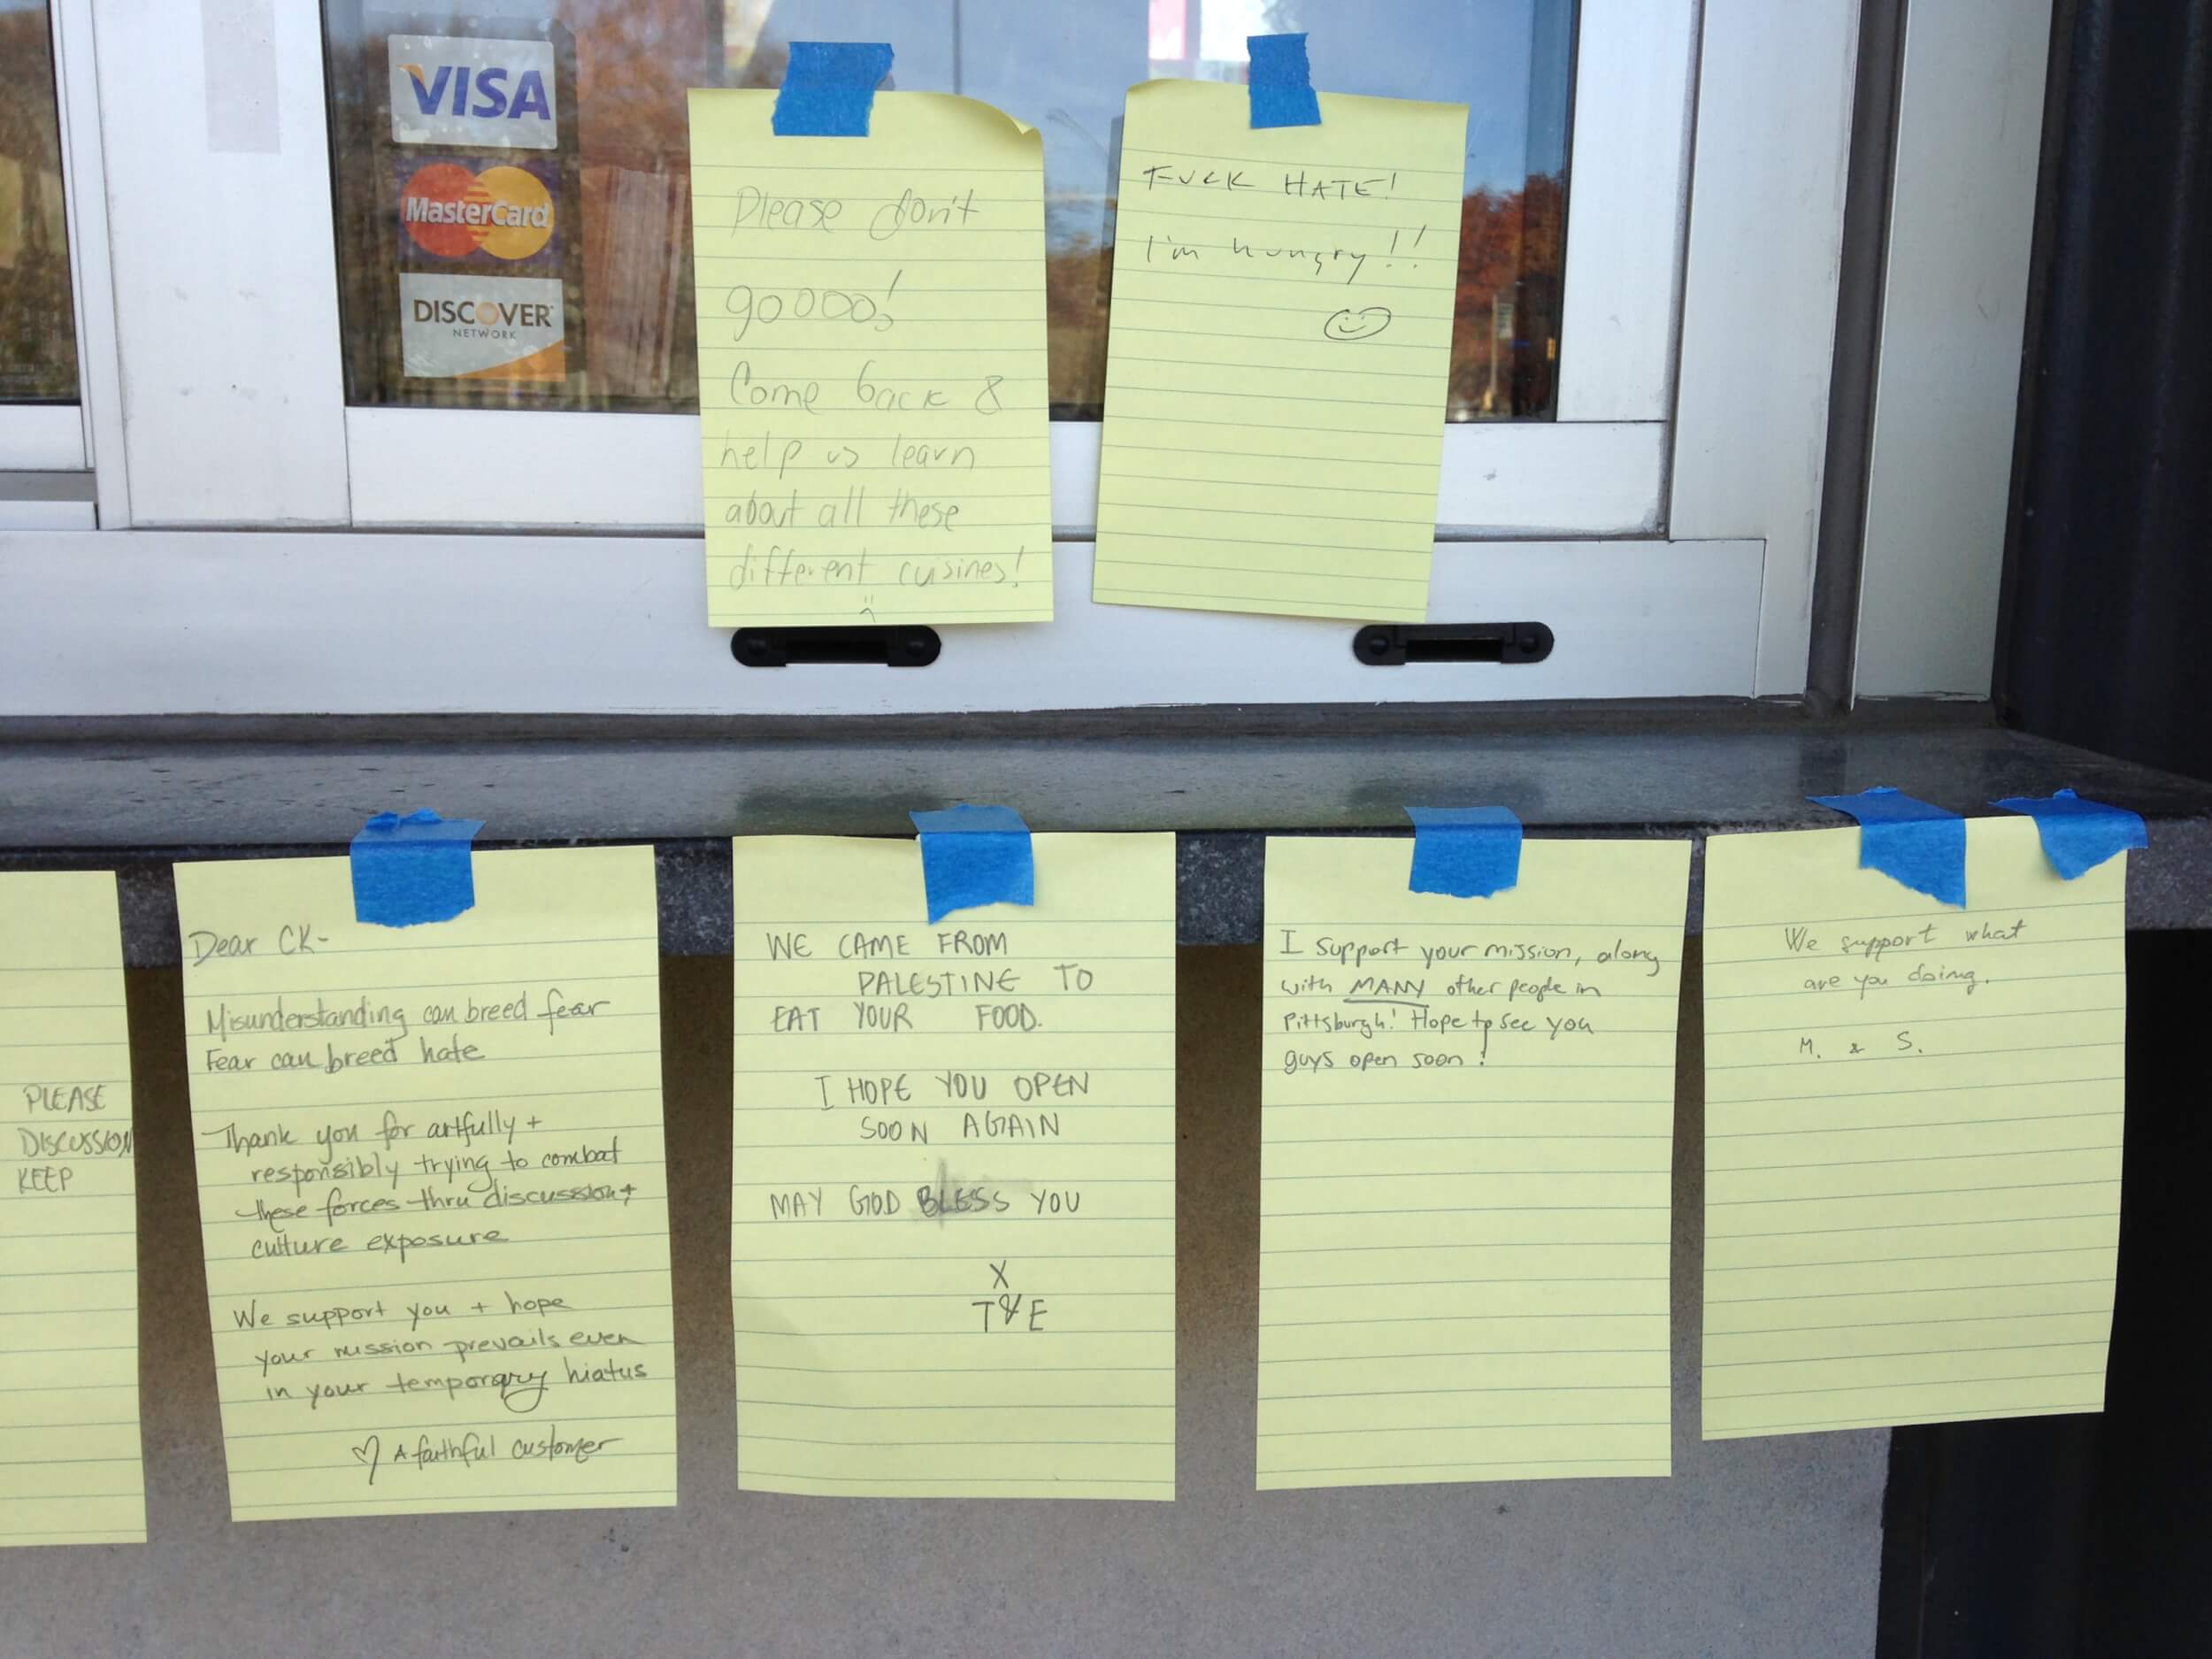 VISA
MasterCard
DISCOVER
NETWORK
Please don't
goooo!
Come back &
help us learn
about all these
different cuisines!
FUCK HATE!
I'm hungry!!
PLEASE
DISCUSSION
KEEP
Dear CK-
Misunderstanding can breed fear
Fear can breed hate
Thank you for artfully +
responsibly trying to combat
these forces thru discussion +
culture exposure
We support you + hope
your mission prevails even
in your temporary hiatus
♡ A faithful customer
WE CAME FROM
PALESTINE TO
EAT YOUR FOOD.
I HOPE YOU OPEN
SOON AGAIN
MAY GOD BLESS YOU
X
T & E
I support your mission, along
with MANY other people in
Pittsburgh! Hope to see you
guys open soon!
We support what
are you doing.
M. & S.